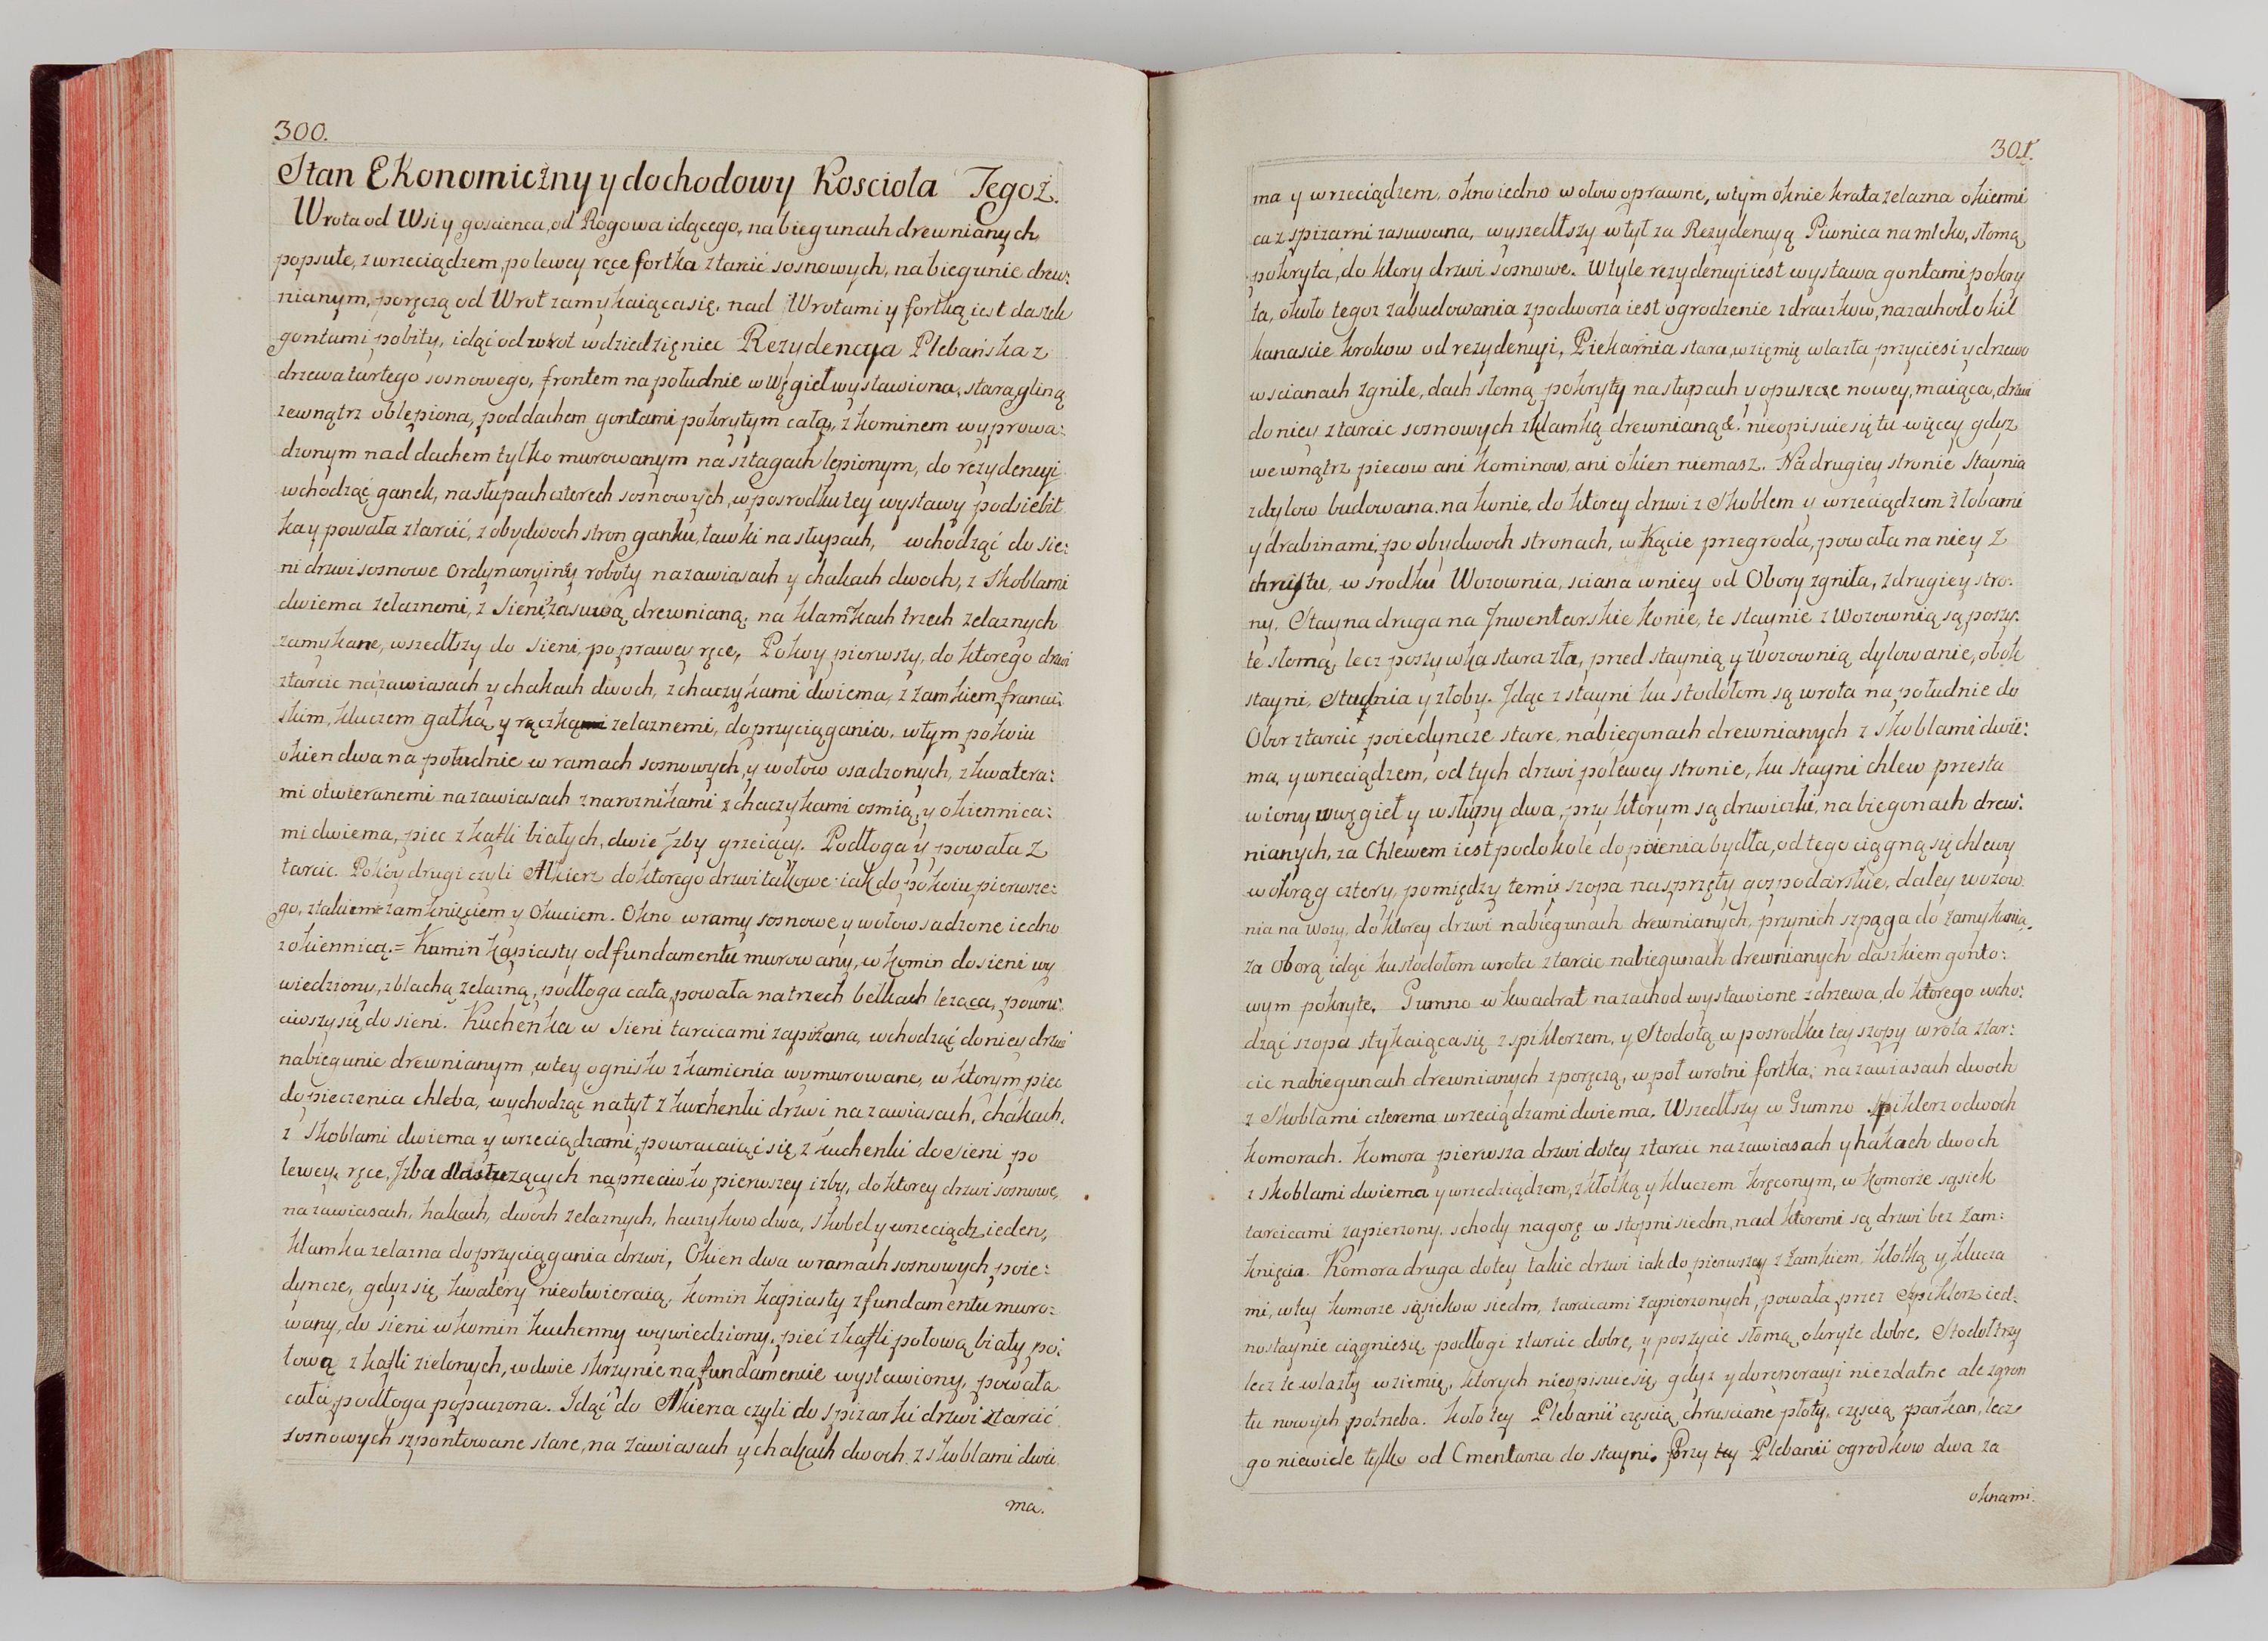 300.
Stan Ekonomiczny y dochodowy Kosciola Tegoż.
Wrota od Wsi y goscienca, od Rogowa idącego, na biegunach drewnianych
popsute, z wrzeciądzem, po lewey ręce fortka z tarcic sosnowych, na biegunie drew:
nianym, poręczą od Wrot zamykaiąca się, nad Wrotami y fortką iest daszek
gontami pobity, idąc od wrot w dziedziniec Rezydencya Plebańska z
drzewa tartego sosnowego, frontem na południe w Węgieł wystawiona, stara gliną
zewnątrz oblepiona, pod dachem gontami pokrytym cała, z kominem wyprowa:
dzonym nad dachem tylko murowanym na sztagach lepionym, do rezydencyi
wchodząc ganek, na słupach czterech sosnowych, w posrodku tey wystawy podsiebit
ka y powała z tarcić, z obydwoch stron ganku, ławki na słupach, wchodząć do sie:
ni drzwi sosnowe ordynaryiney roboty na zawiasach y chakach dwoch, z skoblami
dwiema zelaznemi, z sieni zasuwą drewnianą, na klamkach trzech zelaznych
zamykane, wszedłszy do sieni, po prawey ręce, Pokoy pierwszy, do ktorego drzwi
z tarcic na zawiasach y chakach dwoch, z chaczykami dwiema, z zamkiem francu:
skim, kluczem gałką y rączką zelaznemi, do przyciągania, w tym pokoiu
okien dwa na południe w ramach sosnowych, y w ołow osadzonych, z kwatera:
mi otwieranemi na zawiasach z naroznikami z chaczykami osmią, y okiennica:
mi dwiema, piec z kafli białych, dwie Jzby grzeiący. Podłoga y powała z
tarcic. Pokóy drugi czyli Alkierz do ktorego drzwi takowe iak do pokoiu pierwsze:
go, z takiemże zamknięciem y okuciem. Okno w ramy sosnowe y w ołow sadzone iedno
z okiennicą. = Kamin kapiasty od fundamentu murowany, w komin do sieni wy
wiedziony, z blachą zelazną, podłoga cała, powała na trzech belkach leząca, powru:
ciwszy się do sieni. Kuchenka w sieni tarcicami zapirzona, wchodząć do niey drzwi
na biegunie drewnianym, w tey ognisko z kamienia wymurowane, w ktorym piec
do pieczenia chleba, wychodząc na tył z kuchenki drzwi na zawiasach, chakach,
z skoblami dwiema y wrzeciądzami, powracaiąc się z kuchenki do sieni po
lewey ręce, Jzba dla słuzących naprzeciwko pierwszey izby, do ktorey drzwi sosnowe,
na zawiasach, hakach, dwoch zelaznych, haczykow dwa, skobel y wrzeciądz ieden,
klamka zelazna do przyciągania drzwi, Okien dwa w ramach sosnowych, poie:
dyncze, gdyz się kwatery nieotwieraią, komin kapiasty z fundamentu muro:
wany, do sieni w komin kuchenny wywiedziony, pieć z kafli połową biały, po:
łową z kafli zielonych, w dwie skrzynie na fundamencie wystawiony, powała
cała, podłoga popaczona. Jdąć do Alkierza czyli do spizarki drzwi z tarcić
sosnowych szpontowane stare, na zawiasach y chakach dwoch z skoblami dwie
ma.
301.
ma y wrzeciądzem, okno iedno w ołow oprawne, w tym oknie krata zelazna okienni
ca z spizarni zasuwana, wyszedłszy w tył za Rezydencyą Piwnica na mleko, słomą
pokryta, do ktory drzwi sosnowe. W tyle rezydencyi iest wystawa gontami pokry
ta, około tegoz zabudowania z podworza iest ogrodzenie z draczkow, na zachod o kil
kanascie krokow od rezydencyi, Piekarnia stara, w zięmię wlazła, przyciesi y drzewo
w scianach zgniłe, dach słomą pokryty na słupach y opuszcze nowey, maiąca, drzwi
do niey z tarcic sosnowych z klamką drewnianą &. nieopisuie się tu więcey gdyz
we wnątrz piecow ani kominow, ani okien niemasz. Na drugiey stronie Staynia
z dylow budowana, na konie, do ktorey drzwi z Skoblem y wrzeciądzem żłobami
y drabinami, po obydwoch stronach, w Kącie przegroda, powała na niey z
chrustu, w srodku Wozownia, sciana w niey od Obory zgniła, z drugiey stro:
ny, Stayna druga na Jnwentarskie konie, te staynie z Wozownią są poszy:
te słomą, lecz poszywka stara zła, przed staynią y wozownią dylowanie, obok
stayni, studnia y złoby. Jdąc z stayni ku stodołom są wrota na południe do
Obor z tarcic poiedyncze stare, na biegonach drewnianych z skoblami dwie:
ma, y wrzeciądzem, od tych drzwi po lewey stronie, ku stayni chlew przesta
wiony w węgieł y w słupy dwa, przy ktorym są drzwiczki, na biegonach drew:
nianych, za Chlewem iest podokole do poienia bydła, od tego ciągną się chlewy
w okrąg cztery, pomiędzy temi szopa na sprzęty gospodarskie, daley wozow
nia na wozy, do ktorey drzwi na biegunach drewnianych, przy nich szpąga do zamykania,
za oborą idąc ku stodołom wrota z tarcic na biegunach drewnianych daszkiem gonto:
wym pokryte. Gumno w kwadrat na zachod wystawione z drzewa, do ktorego wcho:
dząć szopa stykaiąca się z spiklerzem, y stodołą w posrodku tey szopy wrota z tar:
cic na biegunach drewnianych z poręczą, w poł wrotni fortka, na zawiasach dwoch
z skoblami czterema wrzeciądzami dwiema. Wszedłszy w Gumno Spiklerz o dwoch
komorach. Komora pierwsza drzwi do tey z tarcic na zawiasach y hakach dwoch
z skoblami dwiema y wrzedziądzem, z kłotką y kluczem kręconym, w komorze sąsiek
tarcicami zapierzony, schody na gorę w stopni siedm, nad ktoremi są drzwi bez zam:
knięcia. Komora druga do tey takie drzwi iak do pierwszey z zamkiem, kłotką y klucza
mi, w tey komorze sąsiekow siedm, tarcicami zapierzonych, powała przez Spiklerz ied:
nostaynie ciągnie się, podłogi z tarcic dobre, y poszycie słomą okryte dobre. Stodoł trzy
lecz te wlazły w ziemię, ktorych nieopisuie się, gdyz y do reperacyi niezdatne ale z grun
tu nowych potrzeba. Koło tey Plebanii częscią chrusciane płoty, częscią parkan, lecz
go niewiele tylko od Cmentarza do stayni. Przy tey Plebanii ogrodkow dwa za
oknami.